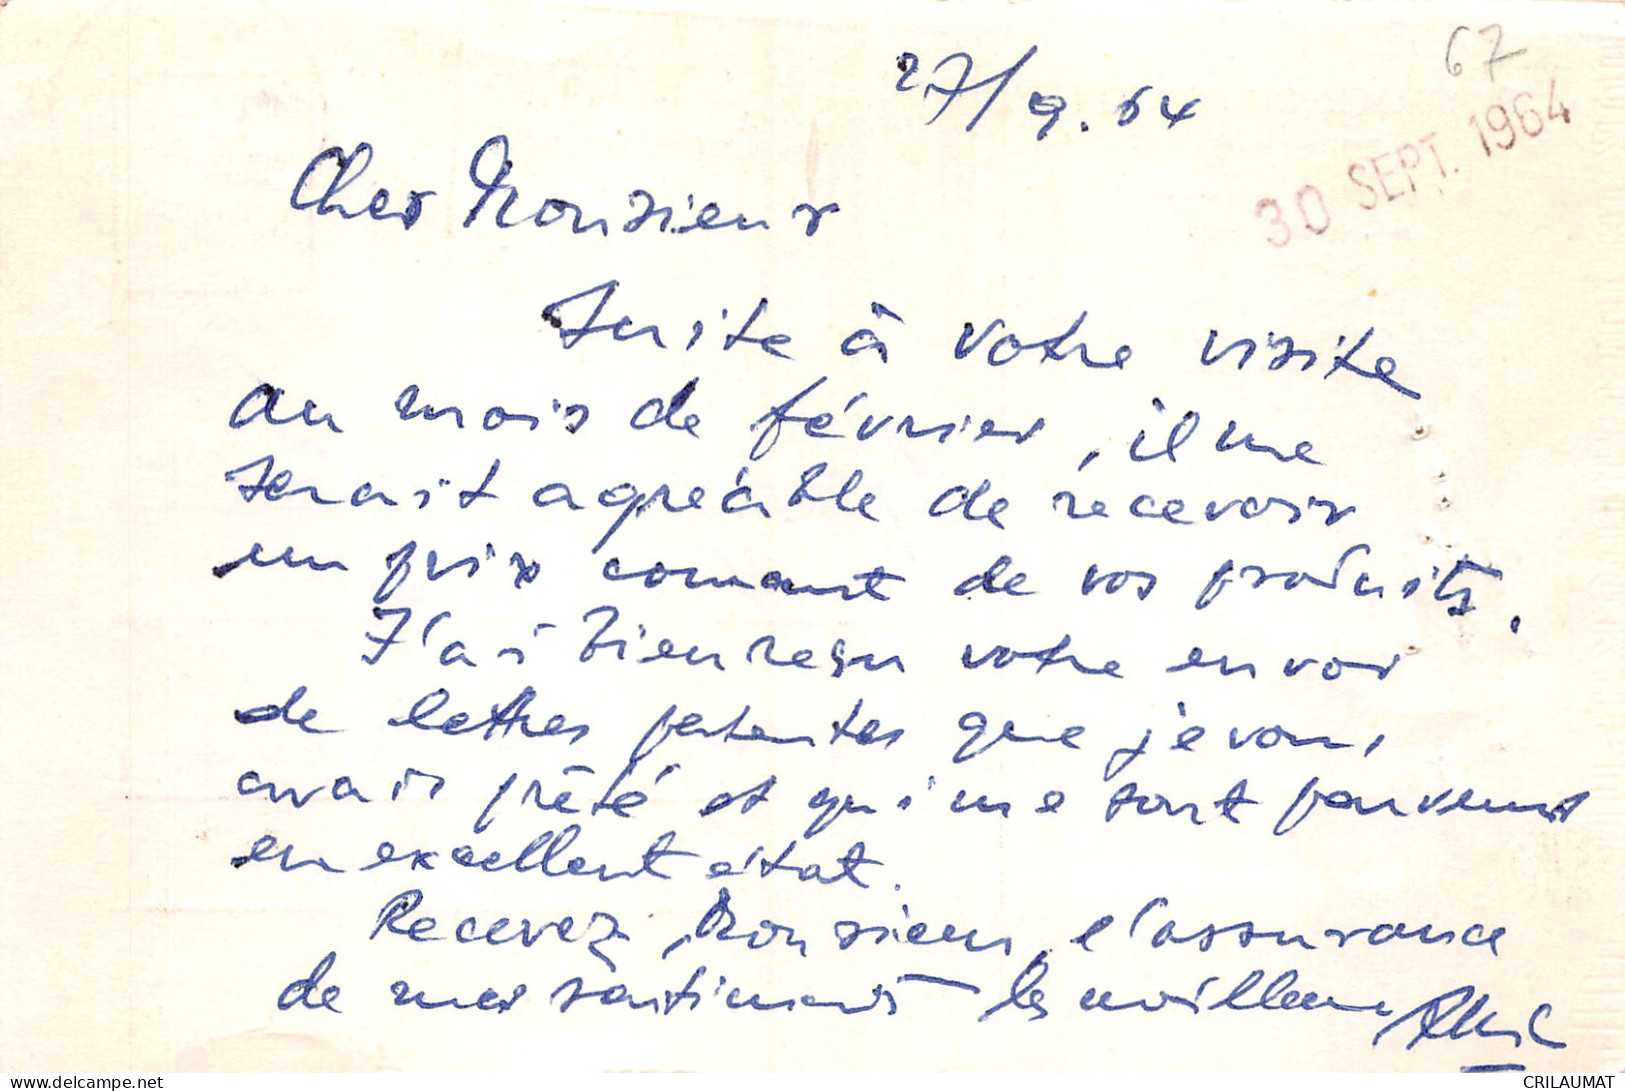 67
27/9.64
30 SEPT. 1964
Cher Monsieur
Suite à votre visite
au mois de février, il me
serait agréable de recevoir
un prix courant de vos produits.
J'ai bien reçu votre envoi
de lettres patentes que je vous
avais prêté et qui me sont parvenus
en excellent état.
Recevez, Monsieur, l'assurance
de mes sentiments les meilleurs
delcampe.net
CRILAUMAT